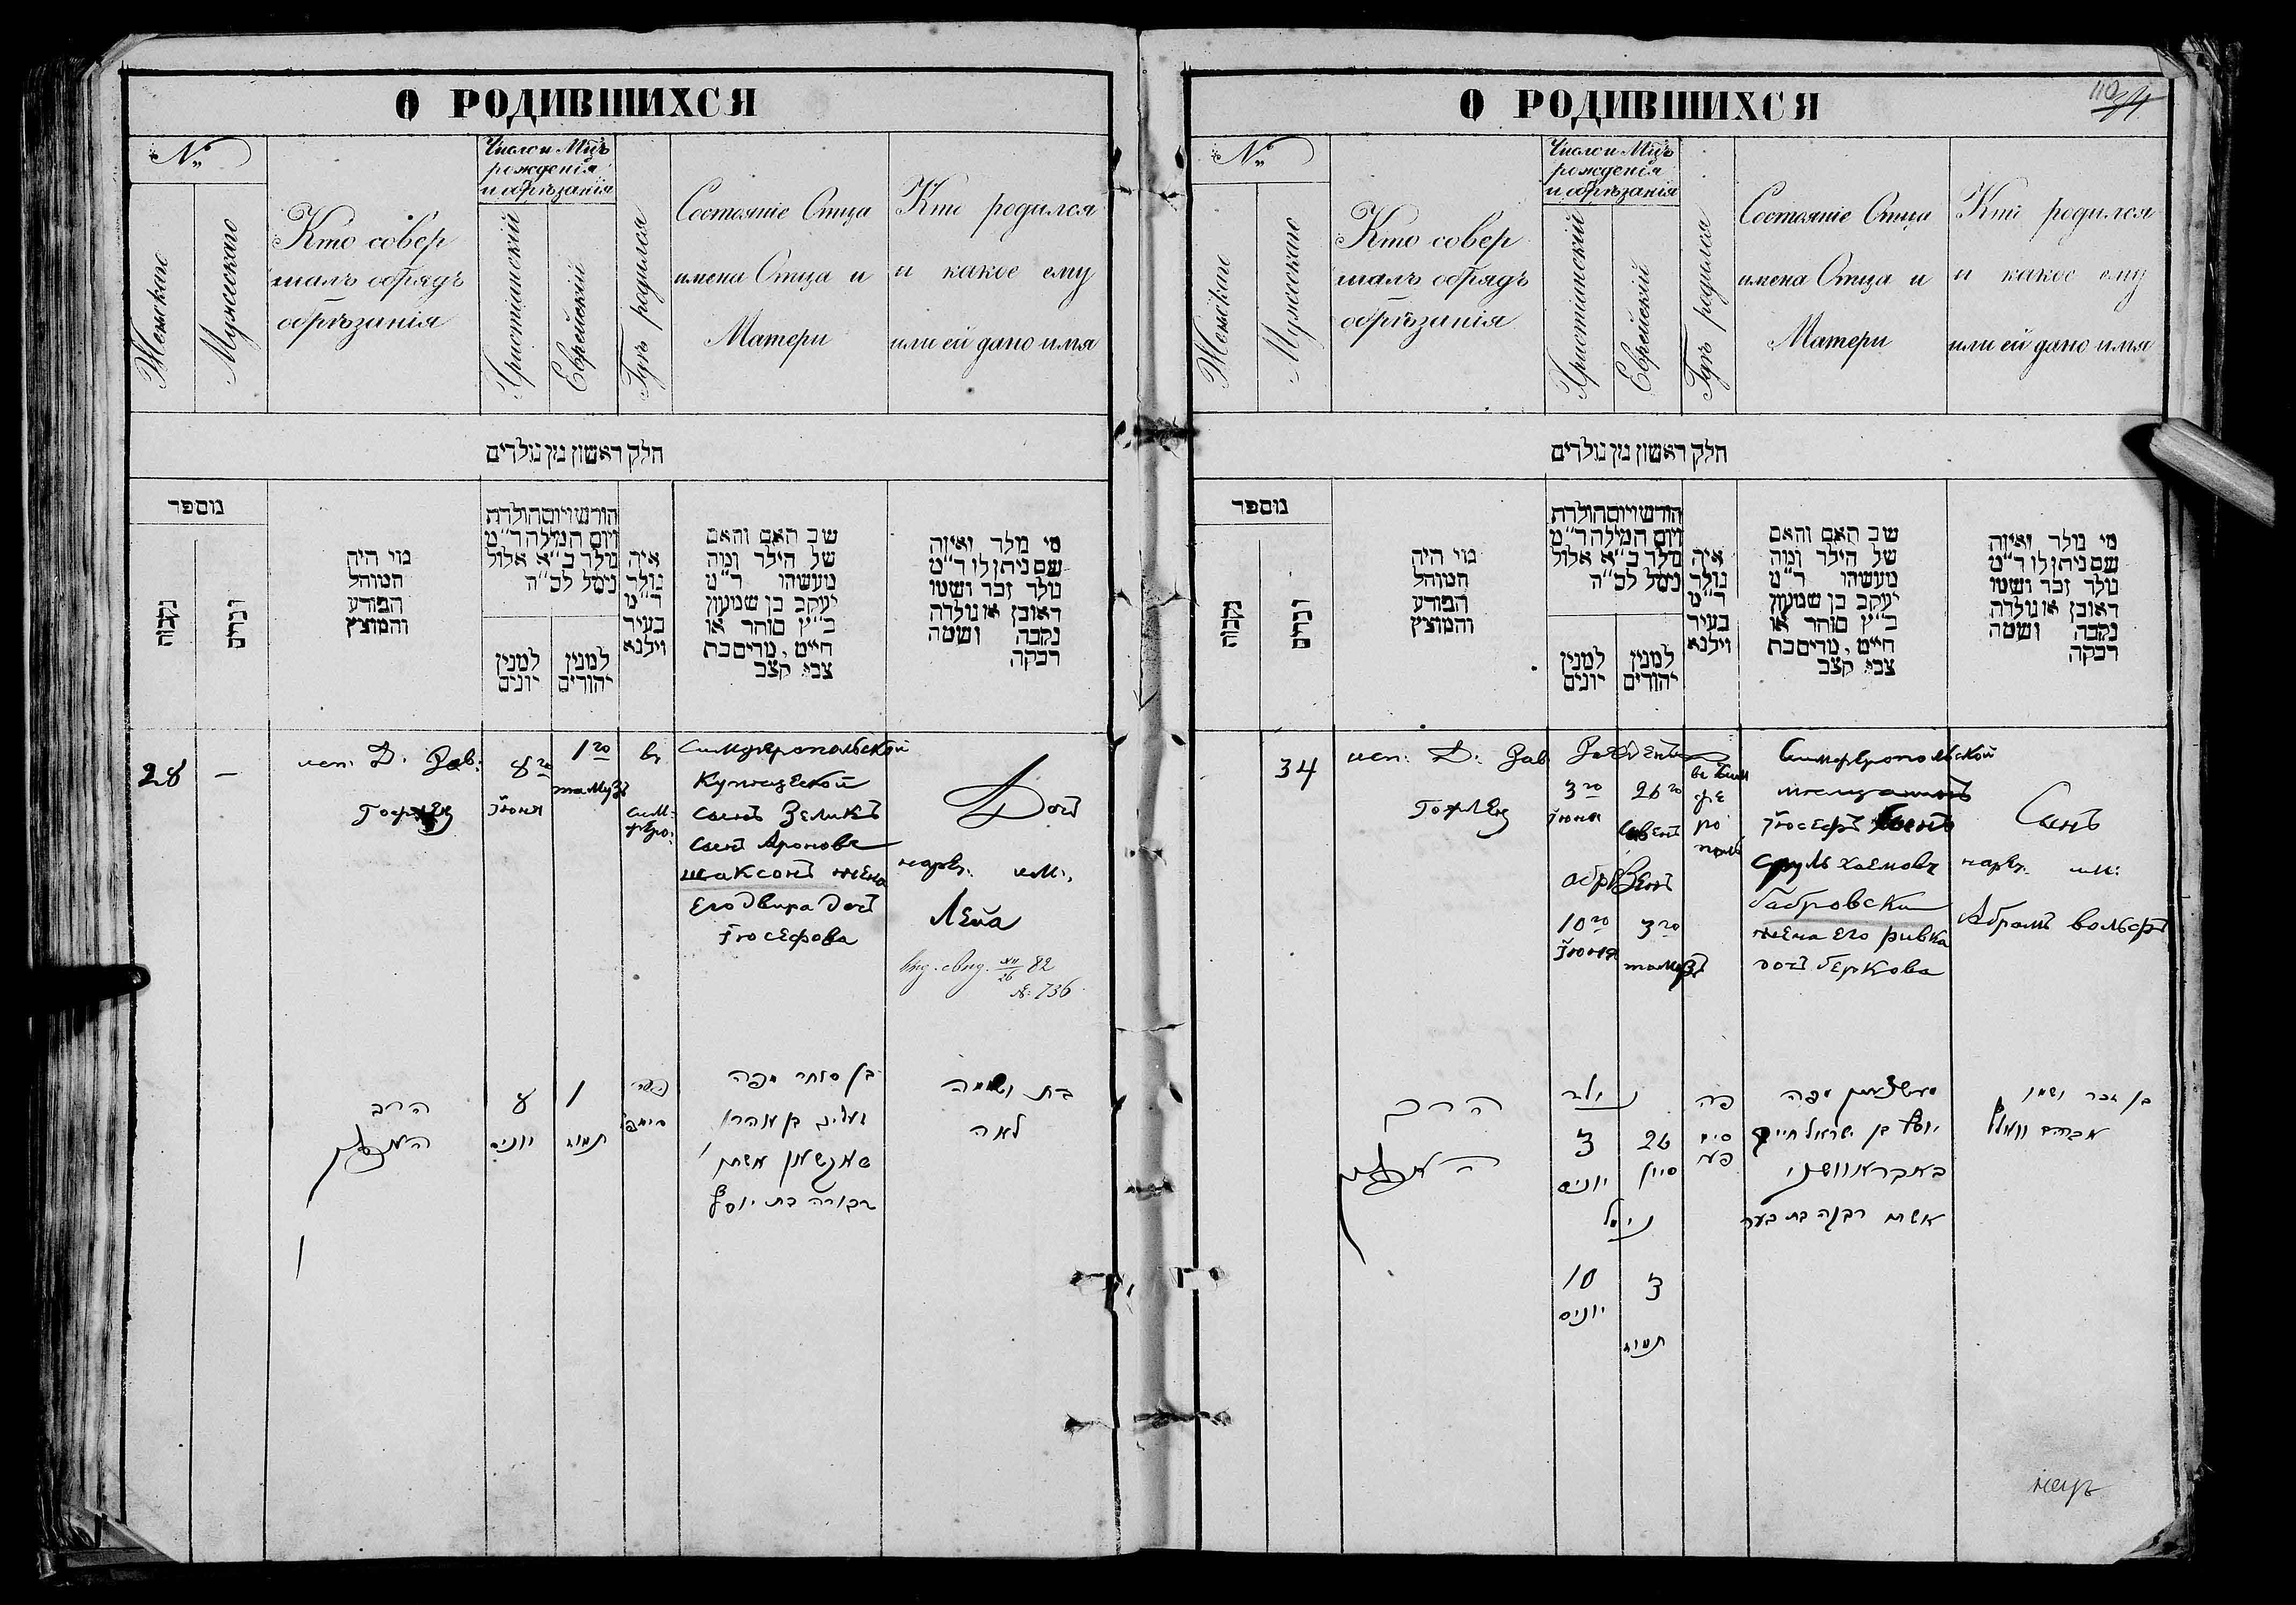 О РОДИВШИХСЯ
№
Женскаго
Мужескаго
Кто совер
шалъ обрядъ
обрѣзанія
Число и Мцъ
рожденія
и обрѣзанія
Христіанскій
Еврейскій
Гдѣ родился
Состояніе Отца
имена Отца и
Матери
Кто родился
и какое ему
или ей дано имя
חלק ראשון מן נולדים
מספר
נקבות
זכרים
מי היה
המוהל
הפורע
והמוצץ
חודש ויום הולדת
ויום המילה ד״מ
נולד כ״א אלול
נימל לכ״ה
למנין
יונים
למנין
יהודים
איה
נולד
ד״מ
בעיר
וילנא
שם האב והאם
של הילד ומה
מעשהו ד״מ
יעקב בן שמעון
כ״ץ סוחר או
חייט, מרים בת
צבי קצב
מי נולד ואיזה
שם ניתן לו ד״מ
נולד זכר ושמו
ראובן או נולדה
נקבה ושמה
רבקה
28
—
исп. Д. Рав.
8го
Іюня
1го
тамузъ
въ
сим:
феро:
Симферопольской
Купецеской
сынъ Зеликъ
сынъ Ароновъ
шаксонъ жена
его Двира дочь
Іюсефова
Дочь
нарѣ. им.
Лейа
Выд. свид. XII/26 82
№ 736
הרב
8
יוניס
1
תמוז
בן סוחר מפה
זעליג בן אהרן
דבורה בת יוסף
בת ושמה
לאה
О РОДИВШИХСЯ
110
№
Женскаго
Мужескаго
Кто совер
шалъ обрядъ
обрѣзанія
Число и Мцъ
рожденія
и обрѣзанія
Христіанскій
Еврейскій
Гдѣ родился
Состояніе Отца
имена Отца и
Матери
Кто родился
и какое ему
или ей дано имя
חלק ראשון מן נולדים
מספר
נקבות
זכרים
מי היה
המוהל
הפורע
והמוצץ
חודש ויום הולדת
ויום המילה ד״מ
נולד כ״א אלול
נימל לכ״ה
למנין
יונים
למנין
יהודים
איה
נולד
ד״מ
בעיר
וילנא
שם האב והאם
של הילד ומה
מעשהו ד״מ
יעקב בן שמעון
כ״ץ סוחר או
חייט, מרים בת
צבי קצב
מי נולד ואיזה
שם ניתן לו ד״מ
נולד זכר ושמו
ראובן או נולדה
נקבה ושמה
רבקה
34
исп. Д. Рав
Гофлец
3го
Іюня
26го
сивенъ
обрѣзенъ
10го
Іюня
3го
тамузъ
въ Сим
фе
ро
поль
Симферопольской
Іюсефъ сынъ
Сруль хаемовъ
Габровски
жена его ривка
дочь беркова
Сынъ
нарѣ. им:
Абрамъ вольфъ
הרב
נולד
3
יוניס
26
סיון
נימל
10
יוניס
3
תמוז
פה
סימ
פער
יוסף בן ישראל חיים
אשתו רבקה בת בער
בן זכר ושמו
אברהם וואלף